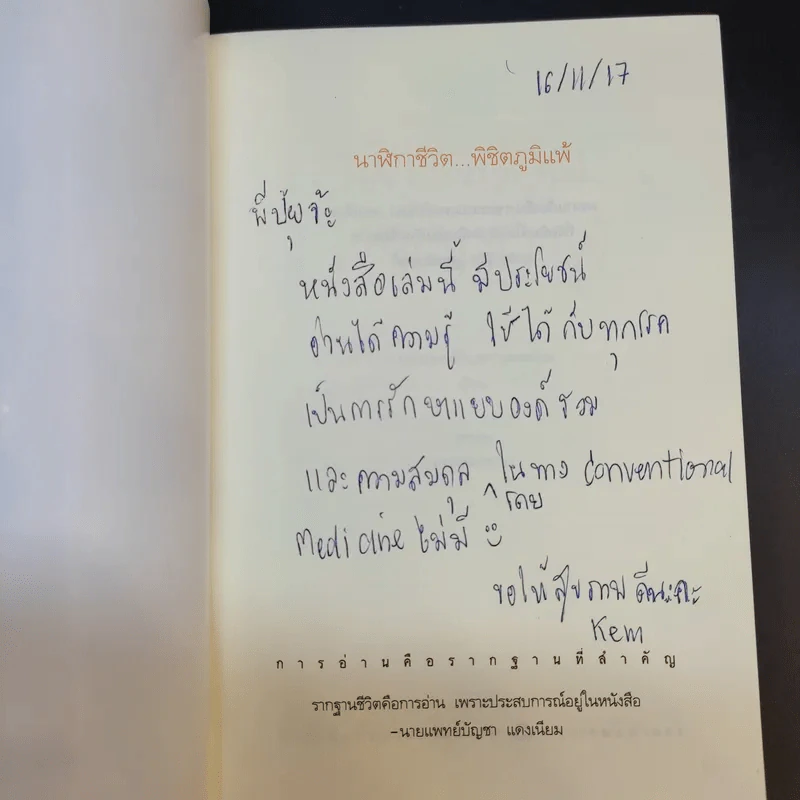 16/11/17
นาฬิกาชีวิต...พิชิตภูมิแพ้
พี่ปุ้ย จ้ะ
หนังสือเล่มนี้ มีประโยชน์
อ่านได้ความรู้ ใช้ได้ กับทุกโรค
เป็นการรักษาแบบองค์รวม
และความสมดุล โดย ในทาง conventional
medicine ไม่มี
ขอให้สุขภาพดีนะคะ
Kem
การอ่านคือรากฐานที่สำคัญ
รากฐานชีวิตคือการอ่าน เพราะประสบการณ์อยู่ในหนังสือ
-นายแพทย์บัญชา แดงเนียม